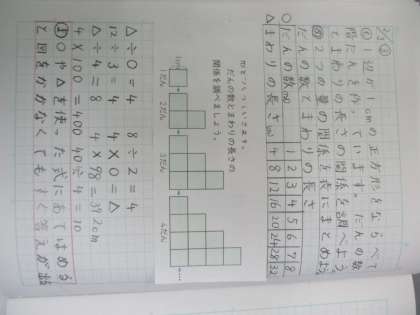 2/3 ③
め 1辺が1cmの正方形をならべて
階だんを作っています。だんの数
とまわりの長さの関係を調べよう。
問 2つの量の関係を表にまとめよう
だんの数とまわりの長さ
○ だんの数(だん) 1 2 3 4 5 6 7 8
△ まわりの長さ(cm) 4 8 12 16 20 24 28 32
だんの数とまわりの長さの
関係を調べましょう。
1cm
1だん 2だん 3だん 4だん
△÷○=4 8÷2=4
12÷3=4 4×○=△
△÷4=8 4×98=392cm
4×100=400 40÷4=10
ま ○や△を使った式にあてはめる
と図をかかなくてもすぐ答えが